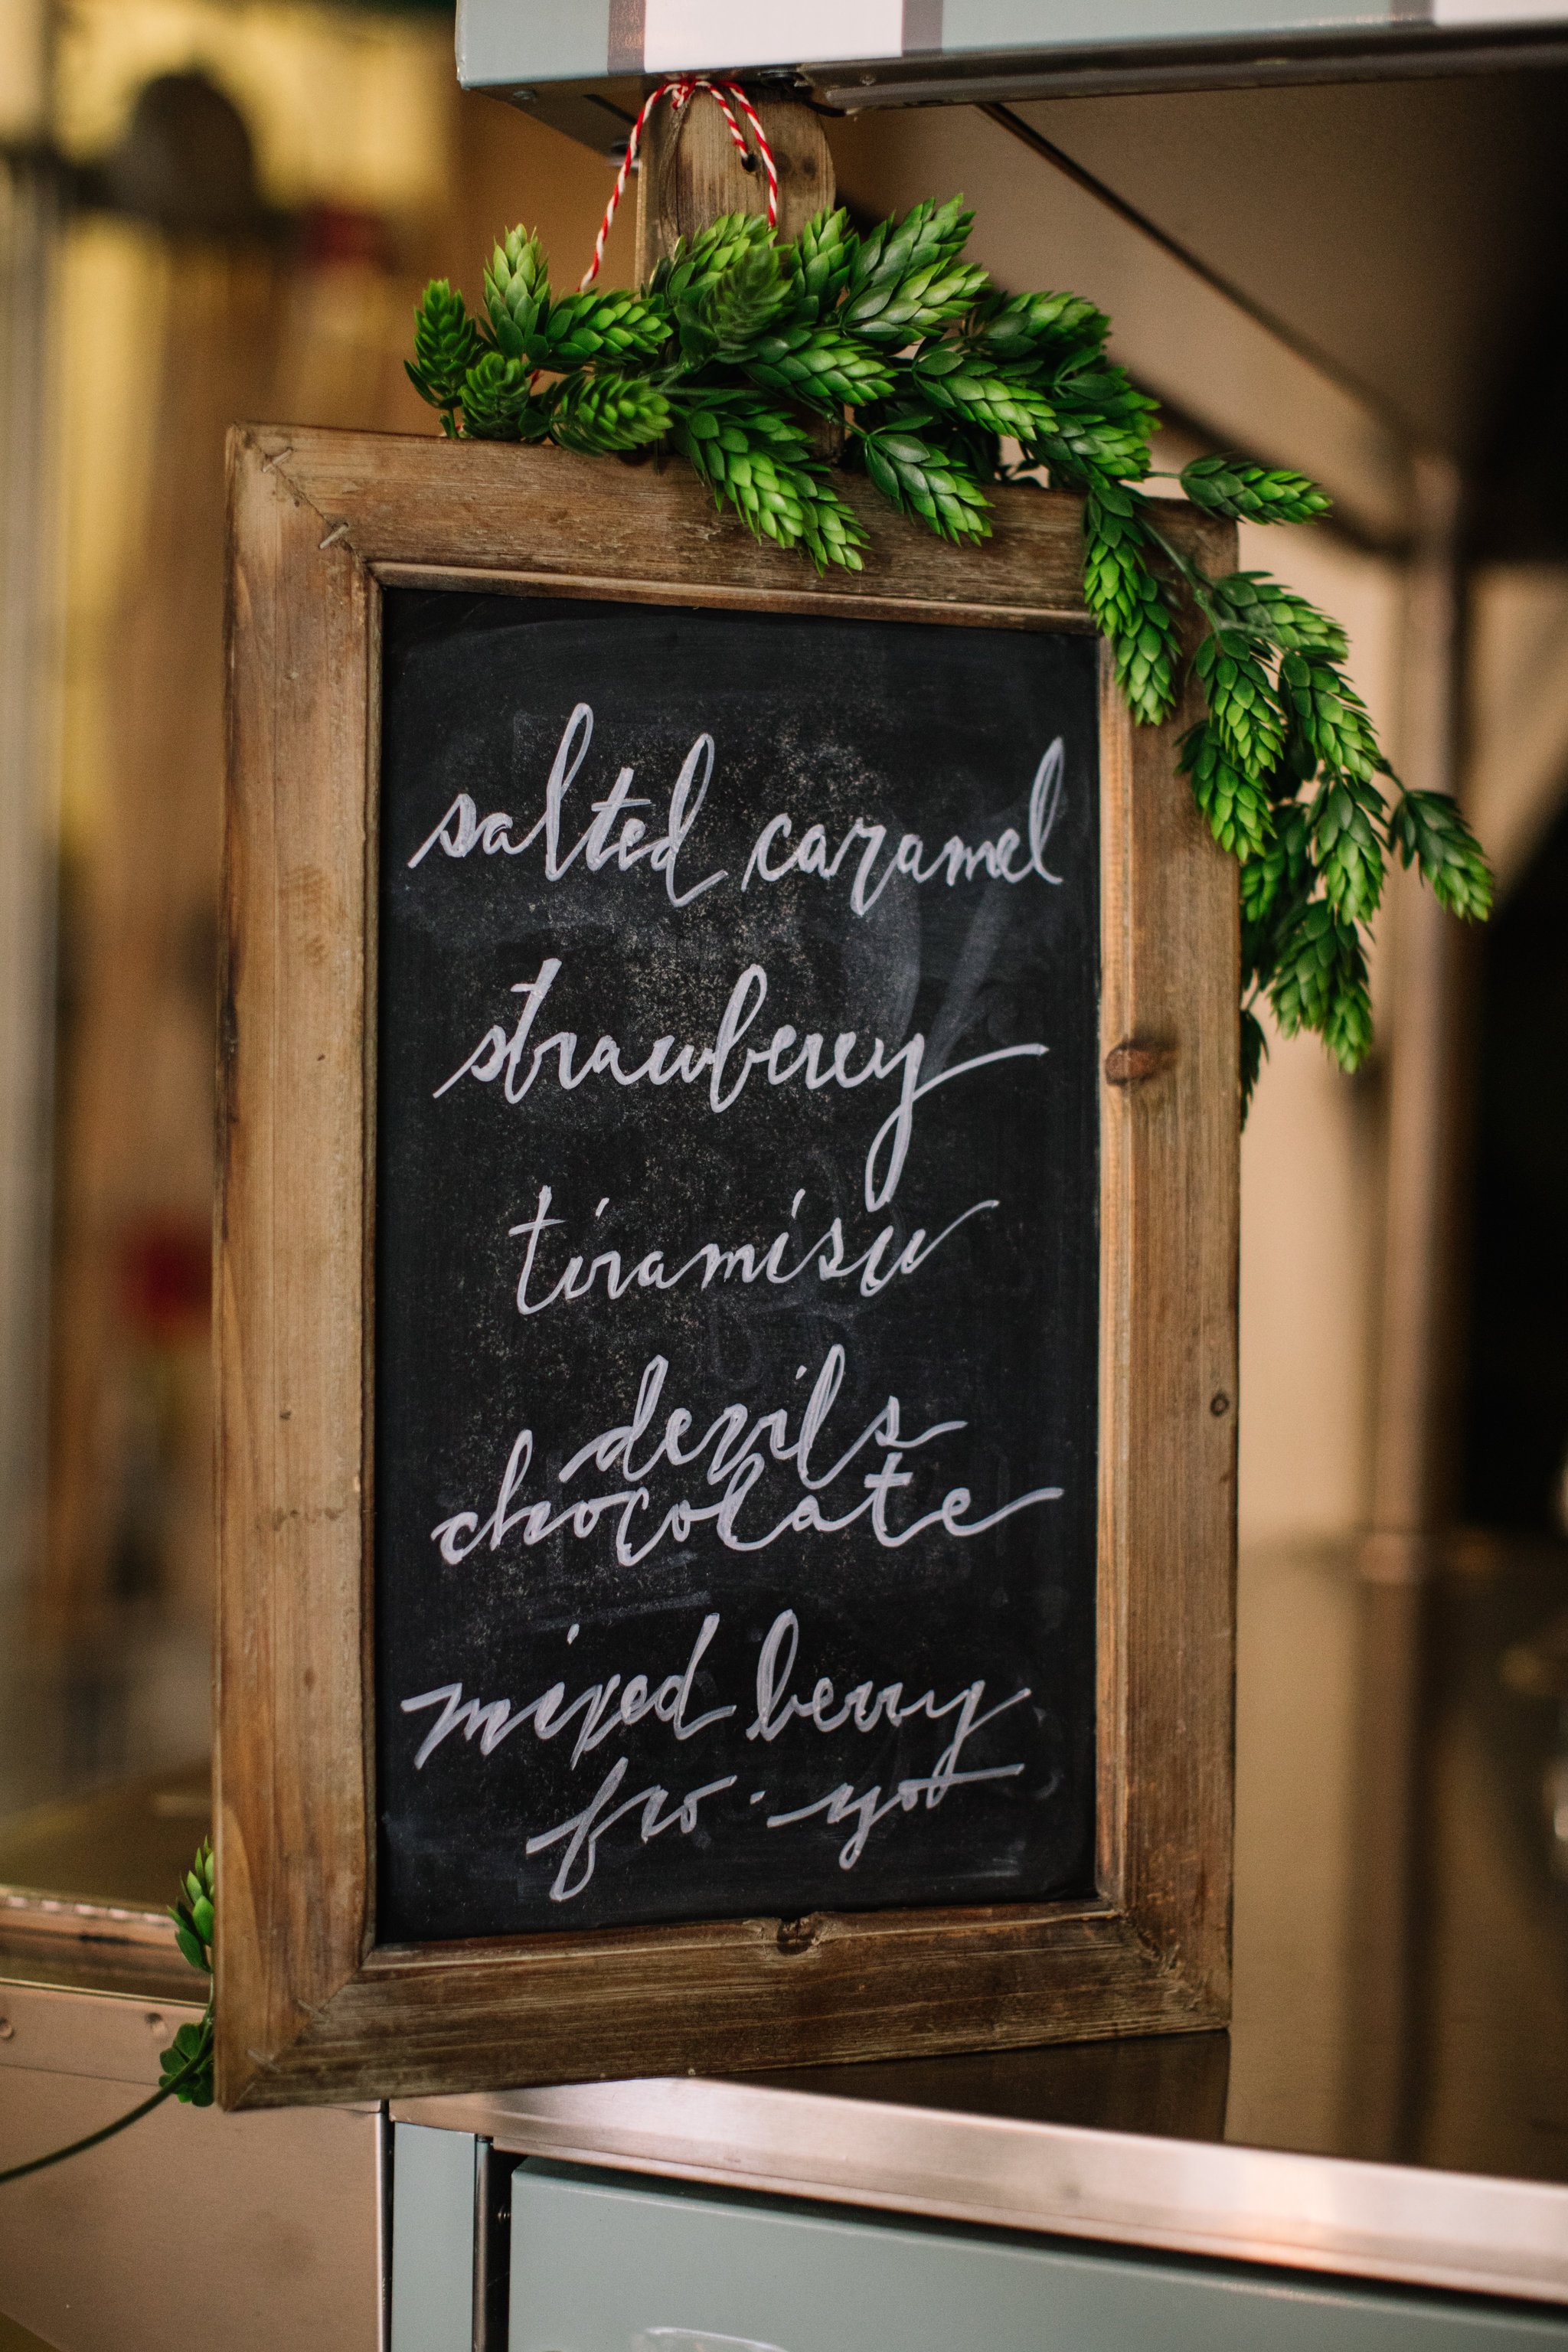 salted caramel
strawberry
tiramisu
devils
chocolate
mixed berry
fro-yo